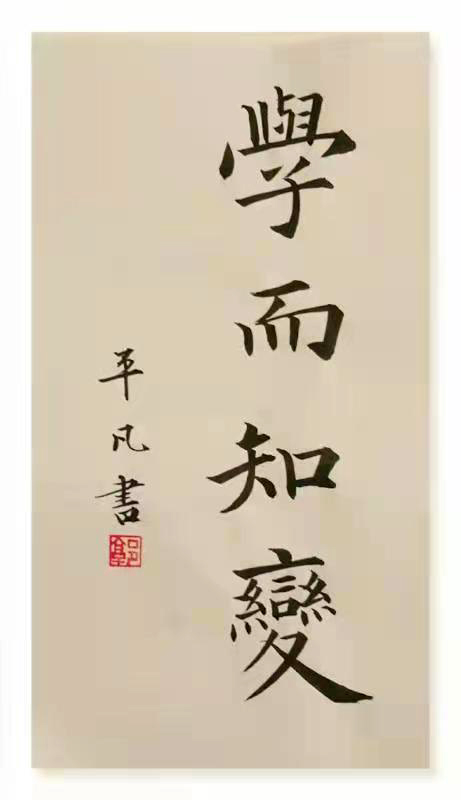 學而知變
平凡書